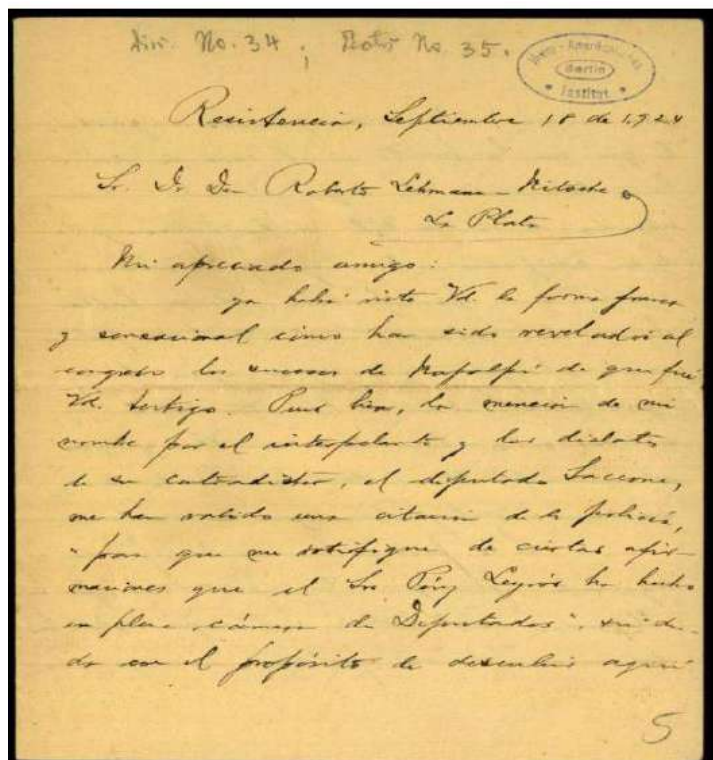 No. 34; No. 35.
Ibero-Amerikanisches
Berlin
Institut
Resistencia, Septiembre 18 de 1924
Sr. Dr. Don Roberto Lehmann-Nitsche
La Plata
Mi apreciado amigo:
ya habrá visto Vd. la forma franca
y sensacional como han sido revelados al
congreso los sucesos de Napalpí de que fué
Vd. testigo. Pues bien, la mención de mi
nombre por el interpelante y los dislates
de su contradictor, el diputado Saccone,
me han valido una citación de la policía,
"para que me ratifique de ciertas afir-
maciones que el Sr Pérez Leyrós ha hecho
en plena cámara de Diputados", sin du-
da con el propósito de descubrir aquí
5